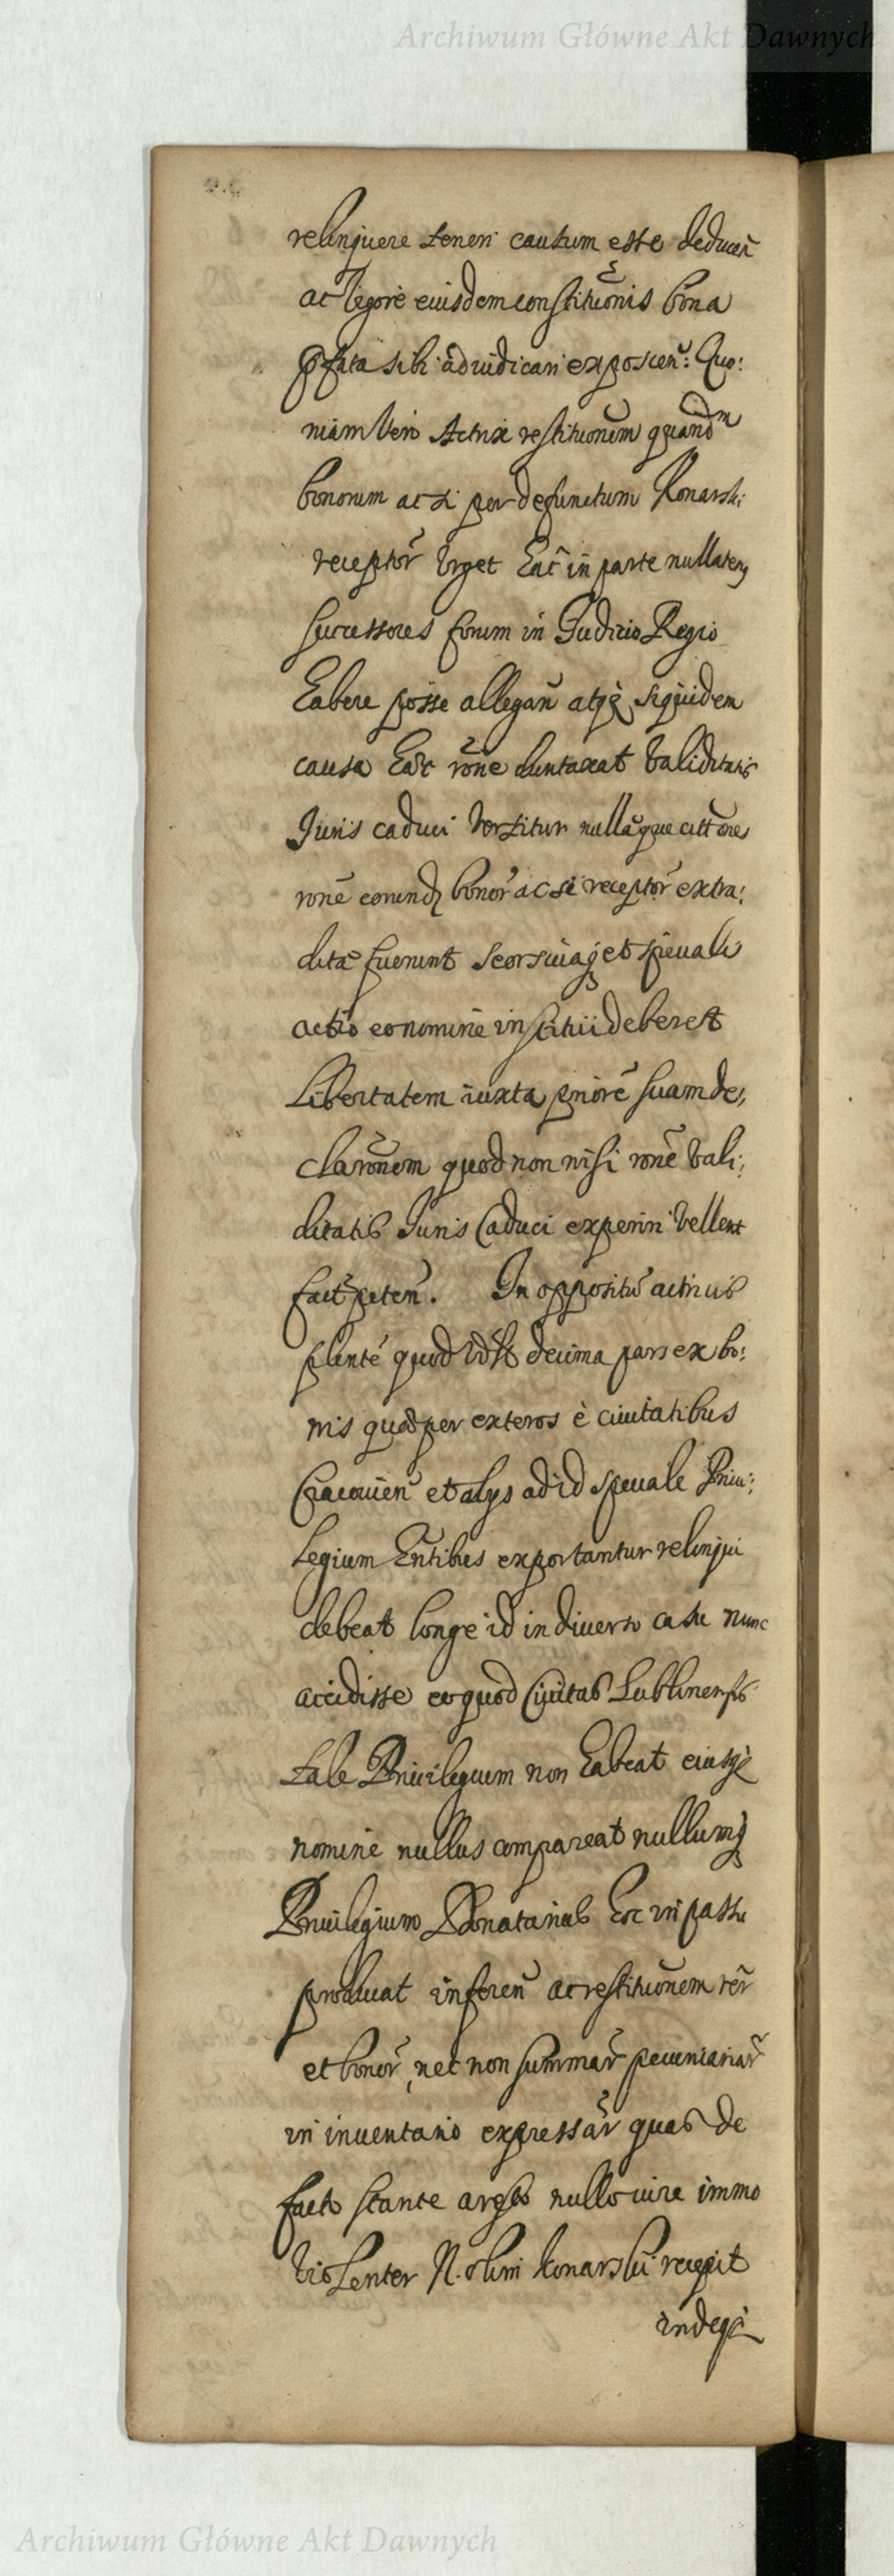 Archiwum Główne Akt Dawnych
relinquere teneri cautum esse deducen̄
ac vigore eiusdem constitūonis bona
p̄fata sibi adiudicari exposcen̄: Quo:
niam vero Actrix restitūonem quandm
bonorum ac si per defunctum Konarski
receptor̄ urget Hac in parte nullateq
successores forum in Judicio Regio
Habere posse allegan̄ atqè siquidem
causa Haec rōne duntaxat validitatis
Juris caduci vertitur nullaque citt͠ones
ronē eorundq bonor̄ ac si receptor̄ extra:
ditae fuerunt seorsivaq et sp̄uali
actio eo nomine institui deberet
Libertatem iuxta priorē suam de,
clarōnem quod non nisi ronē vali:
ditatis Juris Caduci experiri vellent
fact̄ peten̄. In oppositū actricis
plenté quod vdst decima pars ex bo:
nis quae per exteros è civitatibus
Cracovien̄ et alys ad id speuale Priui:
legium Hn̄tibus exportantur relinqui
debeat longe id in diverso casu nunc
accidisse eo quod Civitas Lublinensis
tale Privilegium non Habeat eiusqè
nomine nullus compareat nullumq
Privilegium Donatarius Hoc in passu
producat inferen̄ ac restitūonem rer̄
et bonor̄, nec non summar̄ pecuniariar̄
in inventario expressar̄ quas de
facto stante aresto nullo iure immo
violenter N. olim Konarski recepit
indeqè
Archiwum Główne Akt Dawnych